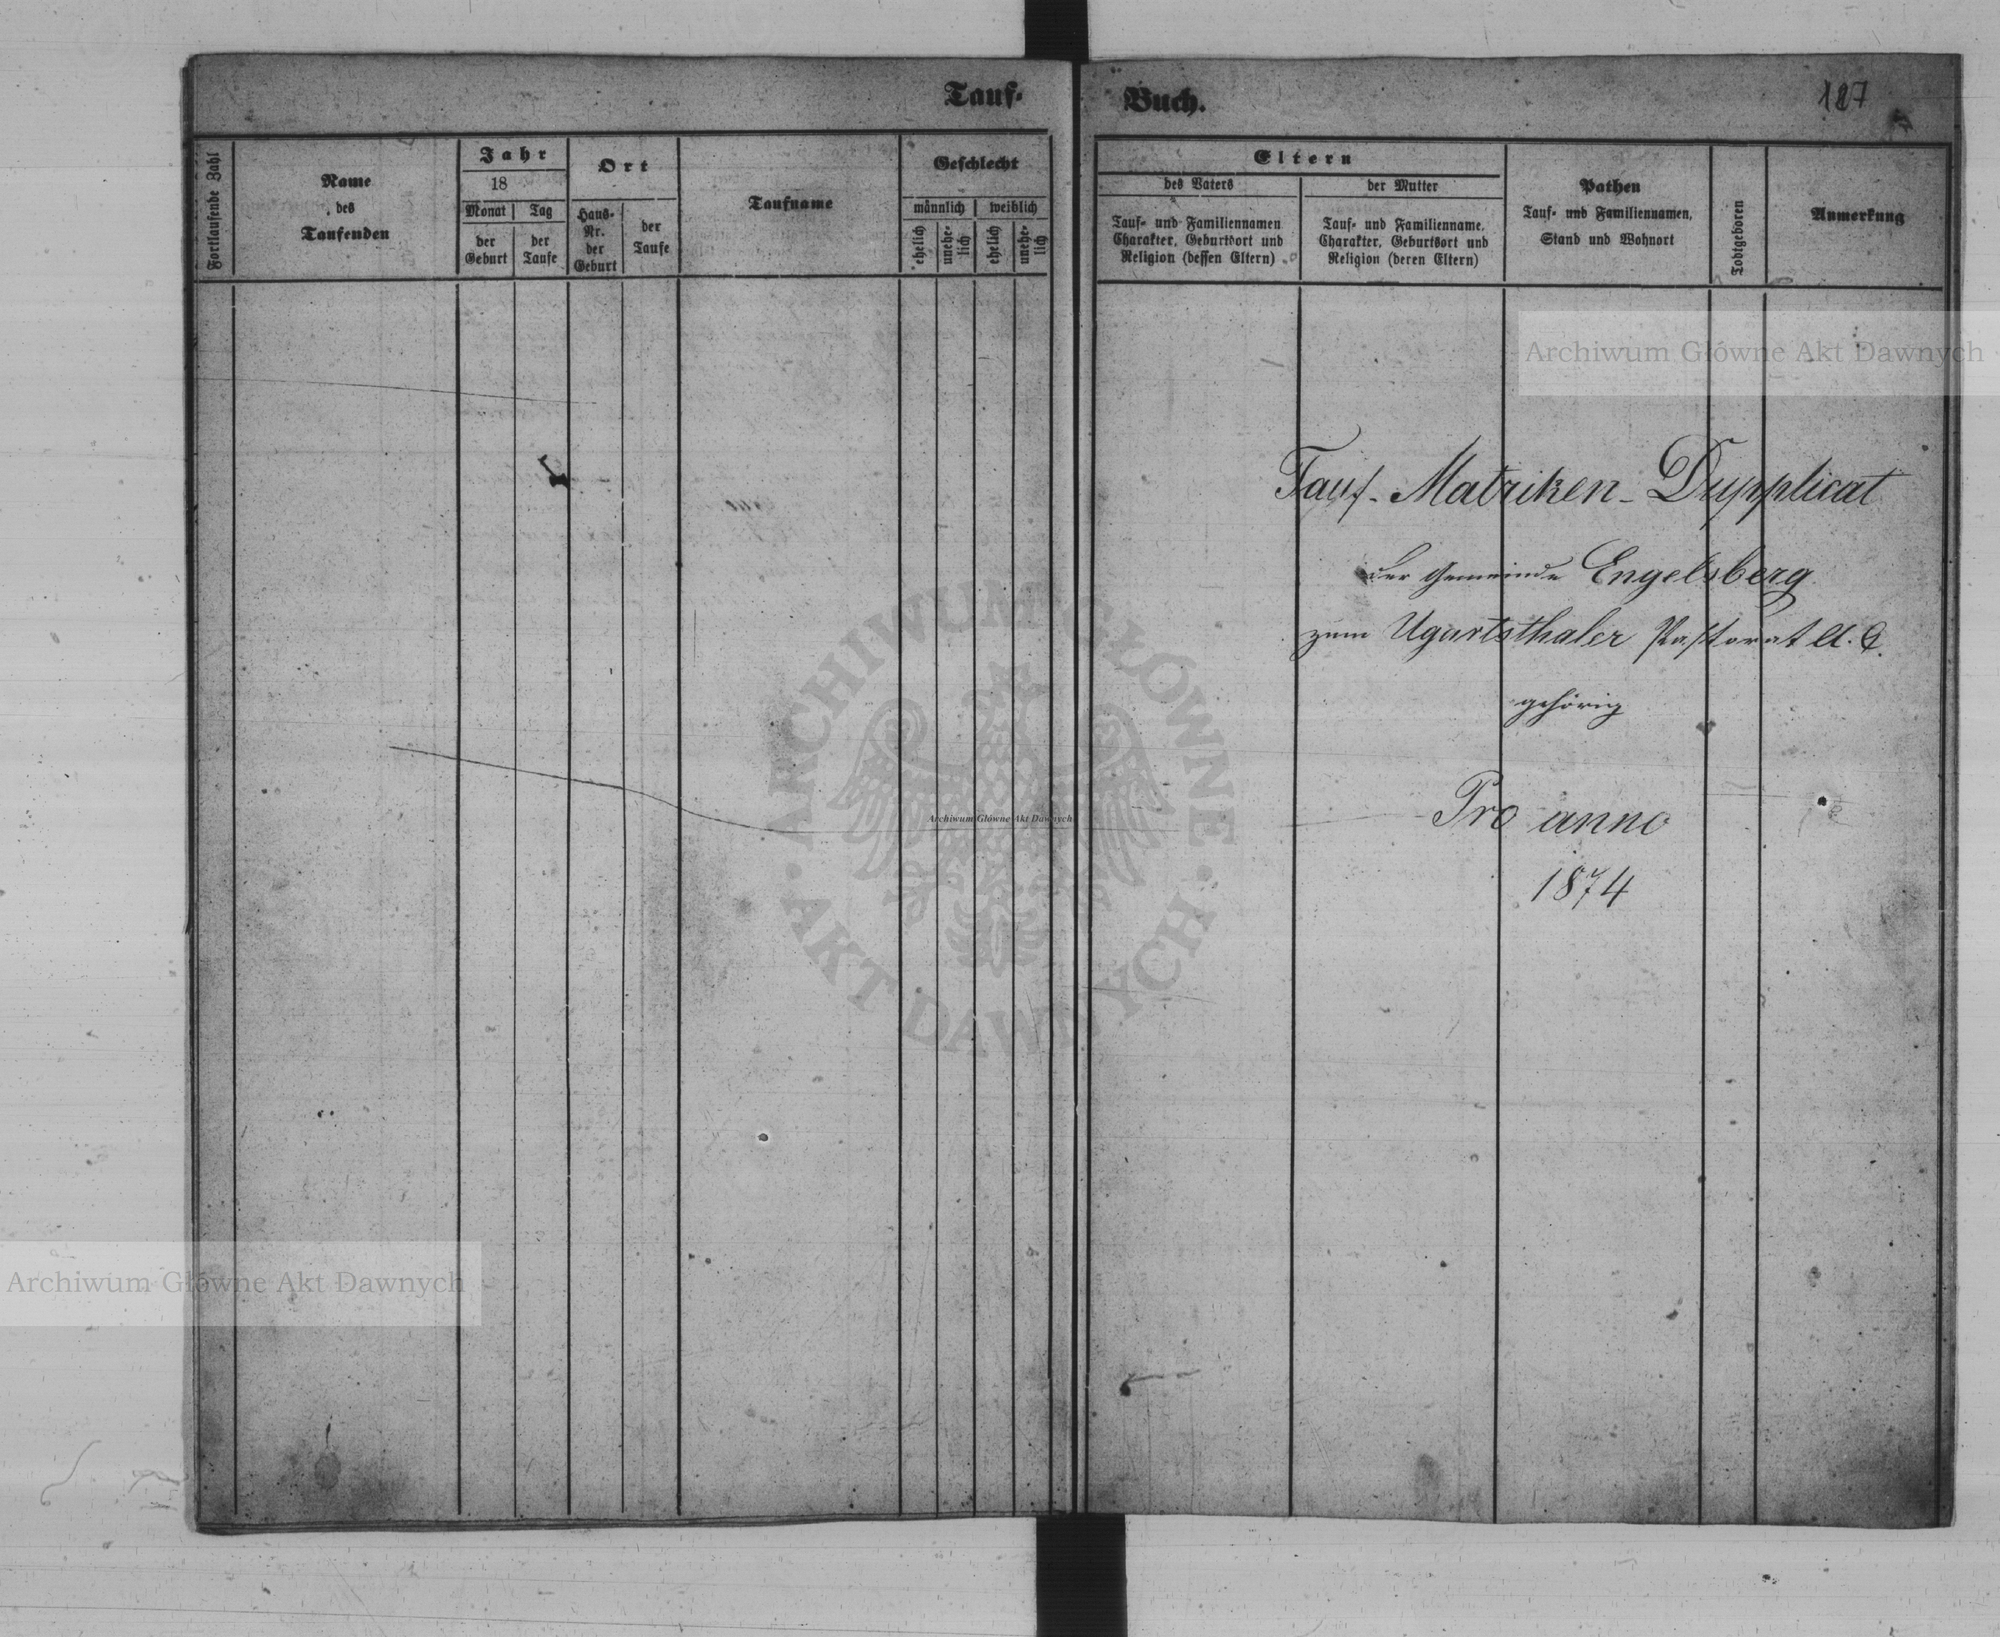 Tauf-
Fortlaufende Zahl
Name
des
Taufenden
Jahr
18
Monat
Tag
der
Geburt
der
Taufe
Ort
Haus-
Nr.
der
Geburt
der
Taufe
Taufname
Geschlecht
männlich
weiblich
ehelich
unehe-
lich
ehelich
unehe-
lich
Buch.
127
Eltern
des Vaters
der Mutter
Tauf- und Familiennamen
Charakter, Geburtsort und
Religion (dessen Eltern)
Tauf- und Familienname,
Charakter, Geburtsort und
Religion (deren Eltern)
Pathen
Tauf- und Familiennamen,
Stand und Wohnort
Todtgeboren
Anmerkung
Archiwum Główne Akt Dawnych
Tauf-Matriken-Dupplicat
der Gemeinde Engelsberg
zum Ugartsthaler Pastorat A. C.
gehörig
Pro anno
1874
ARCHIWUM GŁÓWNE
AKT DAWNYCH
Archiwum Główne Akt Dawnych
Archiwum Główne Akt Dawnych